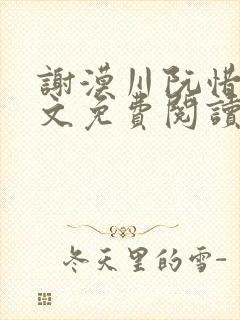 謝漠川阮惜
文免費閱讀
冬天里的雪-